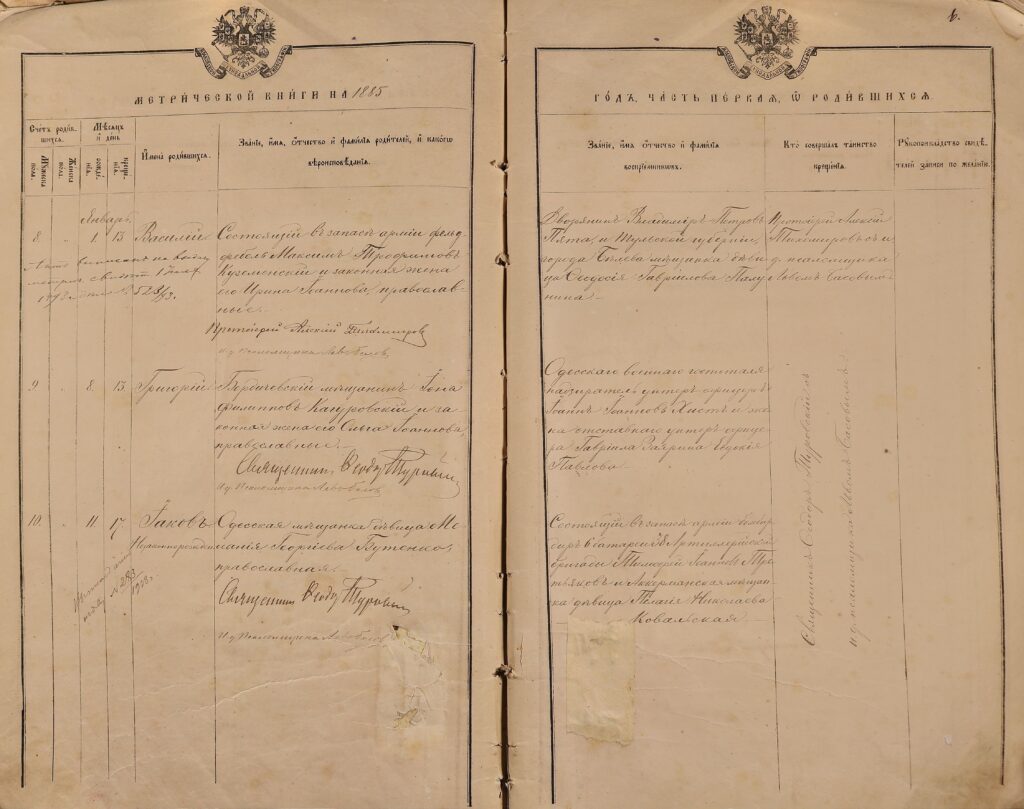 6.
МЕТРИЧЕСКОЙ КНИГИ НА 1885
ГОДЪ, ЧАСТЬ ПЕРВАЯ, Ѡ РОДИВШИХСЯ.
Счетъ родив
шихся.
Мѣсяцъ
и день
Мужеска
пола.
Женска
пол.
рожде
нія.
креще
нія.
Имена родившихся.
Званіе, имя, ѿчество и фамилія родителей, и какогѡ
вѣроисповѣданія.
Званіе, имя, ѿчество и фамилія
воспріемниковъ.
Кто совершалъ таинство
крещенія.
Рꙋкоприкладство свидѣ
телей записи по желанію.
Январь
8 " 1. 13 Василій
Состоящій въ запасѣ арміи фельд
фебель Максимъ Трофимовъ
Куземенскій и законная жена
его Ирина Іоаннова, православ-
ные.
Протоіерей Алексій Тихомировъ
И. д. Псаломщика
1912
Дворянинъ Владиміръ Петровъ
Пята, и Тульской губерніи,
города Бѣлева мѣщанка дѣви
ца Ѳеодосія Гаврилова Палу
нина.
Протоіерей Алексій
Тихомировъ съ и
д. псаломщика
9. " 8. 13. Григорій
Бердичевскій мѣщанинъ Іона
Филипповъ Кацуровскій и за
конная жена его Ольга Іоаннова,
православные.
Священникъ Ѳеодоръ Туровскій
И. д. Псаломщика
Одесскаго военнаго госпиталя
надзиратель унтеръ офицеръ
Іоаннъ Іоанновъ Хистъ и же
на отставнаго унтеръ офице
ра Гавріила Евдокія
Павлова
10. " 11. 17. Іаковъ
Незаконнорожден
Одесская мѣщанка дѣвица Ме
ланія Георгіева Бутенко,
православная.
Священникъ Ѳеодоръ Туровскій
И. д. Псаломщика
№ 293
Состоящій въ запасѣ арміи бомбар
диръ батареи Артиллерійской
бригады Тимоѳей Іоанновъ Тре
тьяковъ и Аккерманская мѣщан
ка дѣвица Пелагія Николаева
Ковальская
Священникъ Ѳеодоръ Туровскій съ
и. д. псаломщика